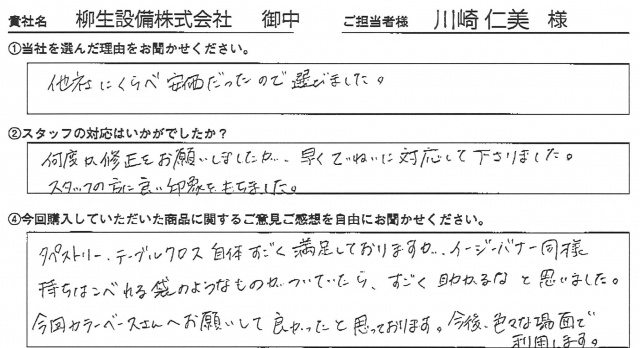 貴社名 柳生設備株式会社 御中 ご担当者様 川崎 仁美 様
①当社を選んだ理由をお聞かせください。
他社にくらべ安価だったので選びました。
②スタッフの対応はいかがでしたか?
何度か修正をお願いしましたが、早くていねいに対応して下さりました。
スタッフの方に良い印象をもちました。
④今回購入していただいた商品に関するご意見ご感想を自由にお聞かせください。
タペストリー、テーブルクロス自体すごく満足しておりますが、イージーバナー同様
持ちはこべれる袋のようなものがついていたら、すごく助かるなと思いました。
今回カラーベースさんへお願いして良かったと思っております。今後、色々な場面で
利用します。